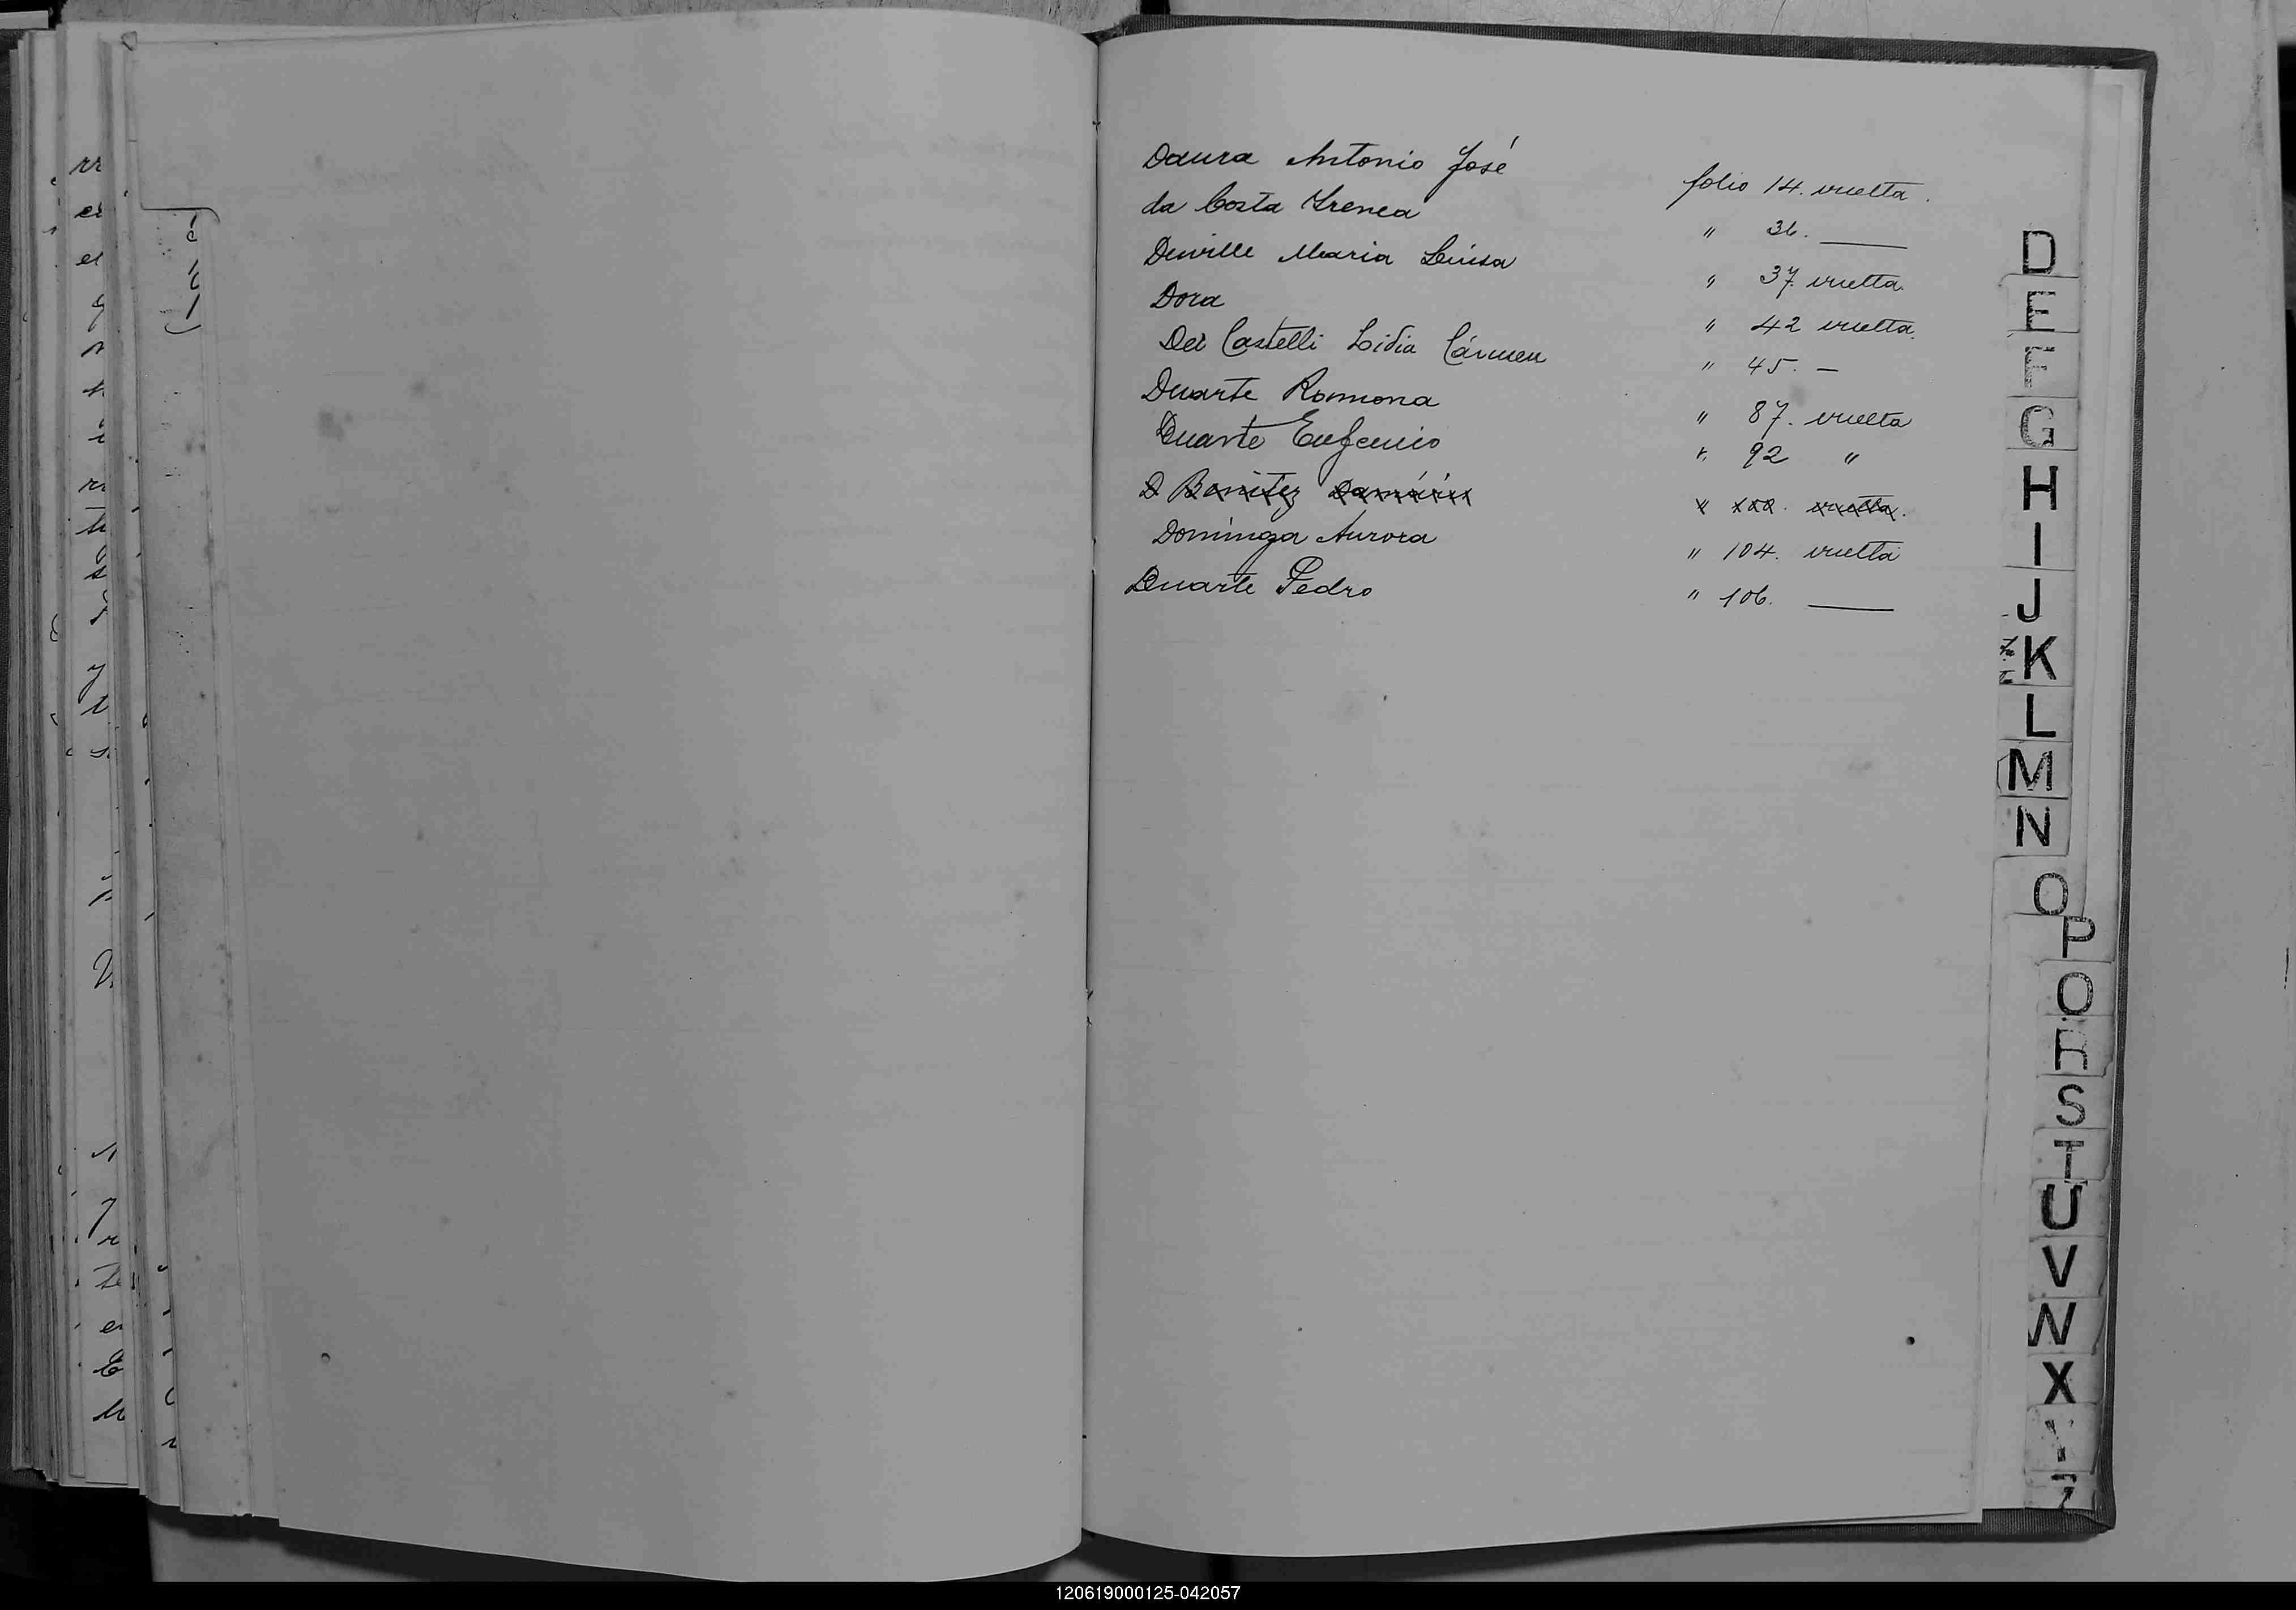 Daura Antonio José folio 14. vuelta.
da Costa Irenea " 36. ———
Deuville Maria Luisa " 37. vuelta.
Dora " 42 vuelta.
Del Castelli Lidia Cármen " 45. —
Duarte Romona " 87. vuelta
Duarte Eugenio " 92 "
D Benitez Damásia " 102. vuelta.
Dominga Aurora " 104. vuelta
Duarte Pedro " 106. ———
D
E
F
G
H
I
J
K
L
M
N
O
P
Q
R
S
T
U
V
W
X
Y
Z
120619000125-042057